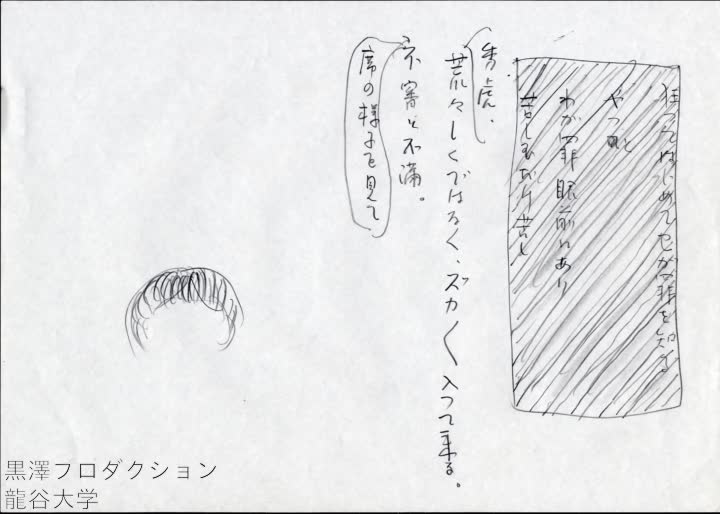 狂ってはじめてわが罪を知る
やつれと
わが罪眼前にあり
苦しむだけ苦しむ
秀虎、
荒々しくではなく、ズカ〱入って来る。
不審と不満。
席の様子を見て
黒澤プロダクション
龍谷大学